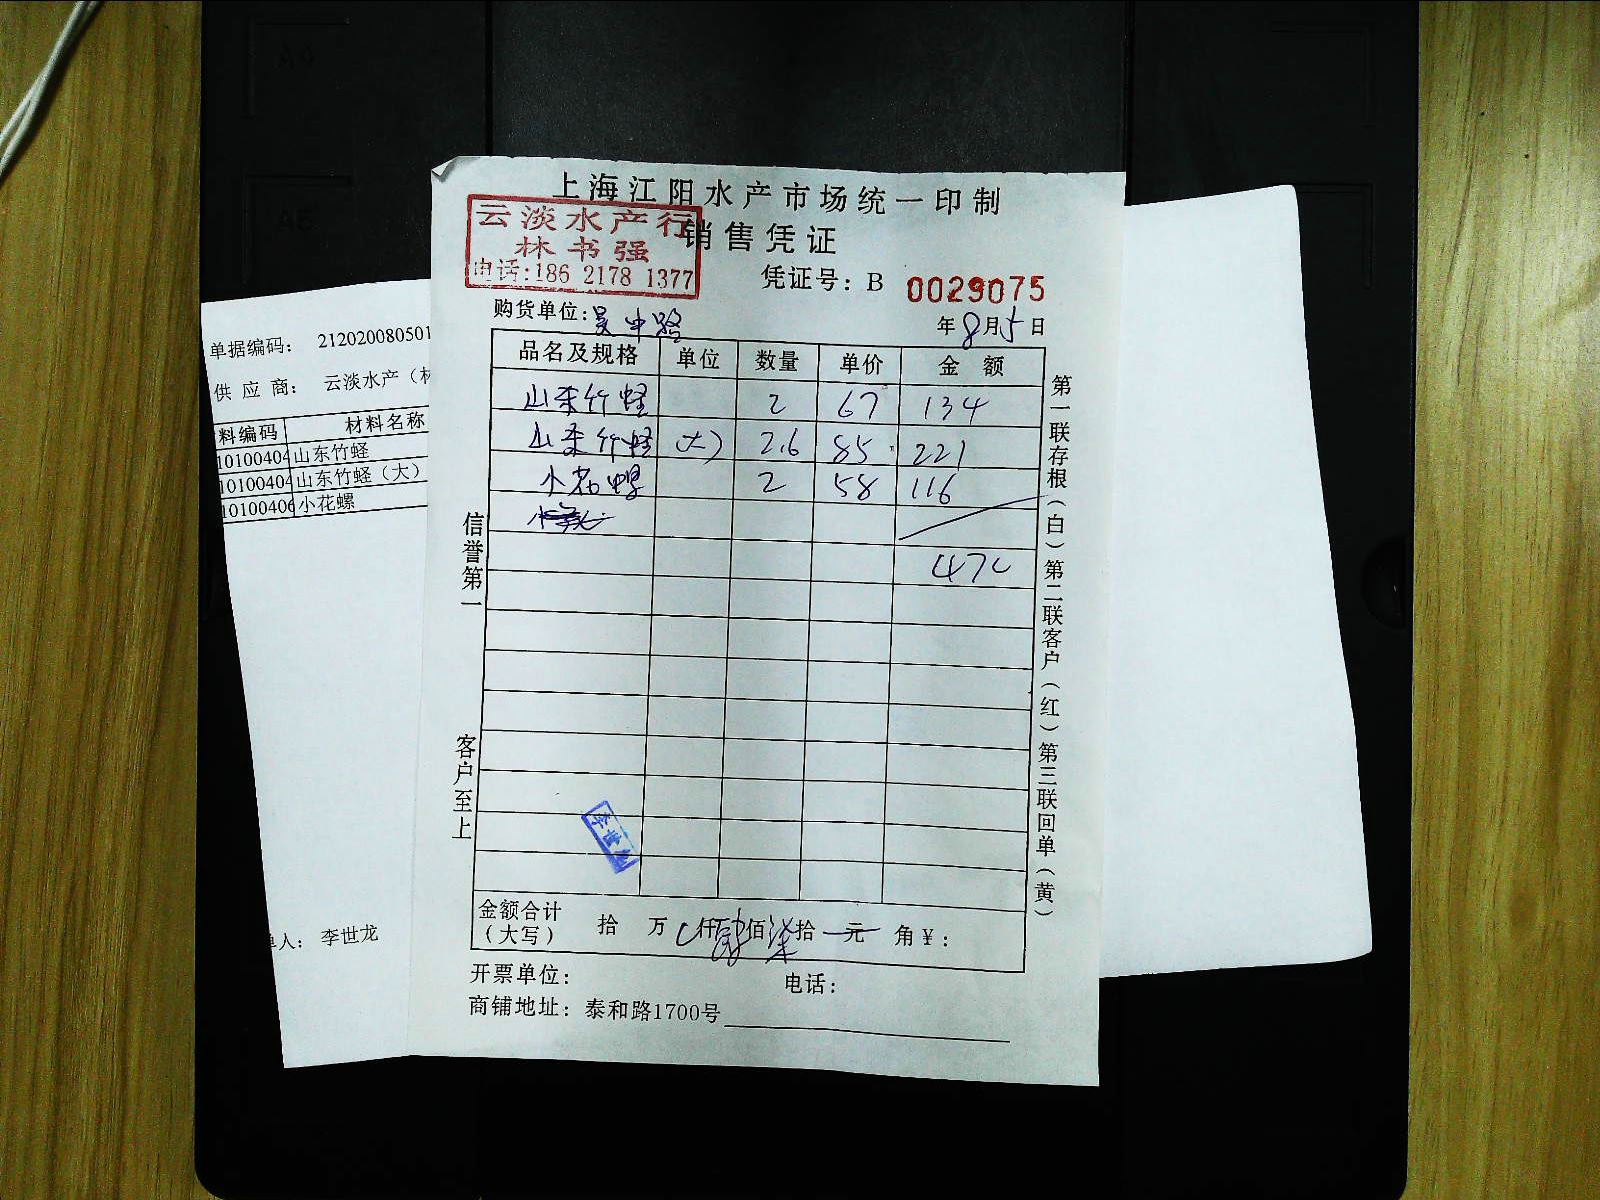 上海江阳水产市场统一印制
云淡水产行
林书强
电话:186 2178 1377
销售凭证
凭证号: B 0029075
购货单位: 吴中路
年8月5日
品名及规格 单位 数量 单价 金额
山东竹蛏 2 67 134
山东竹蛏 (大) 2.6 85 221
小花螺 2 58 116
47
信誉第一
客户至上
第一联存根(白)第二联客户(红)第三联回单(黄)
李世龙
金额合计(大写) 拾 万 仟肆佰柒拾 元 角 ¥:
开票单位: 电话:
商铺地址: 泰和路1700号
单据编码: 212020080501
供应商: 云淡水产(林
料编码 材料名称
10100404 山东竹蛏
10100404 山东竹蛏(大)
10100406 小花螺
单人: 李世龙
A4
A5